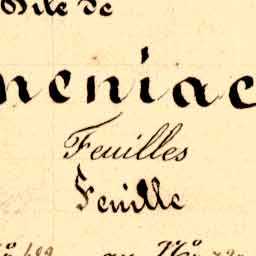 de
neniac
Feuilles
Feuille
au N°